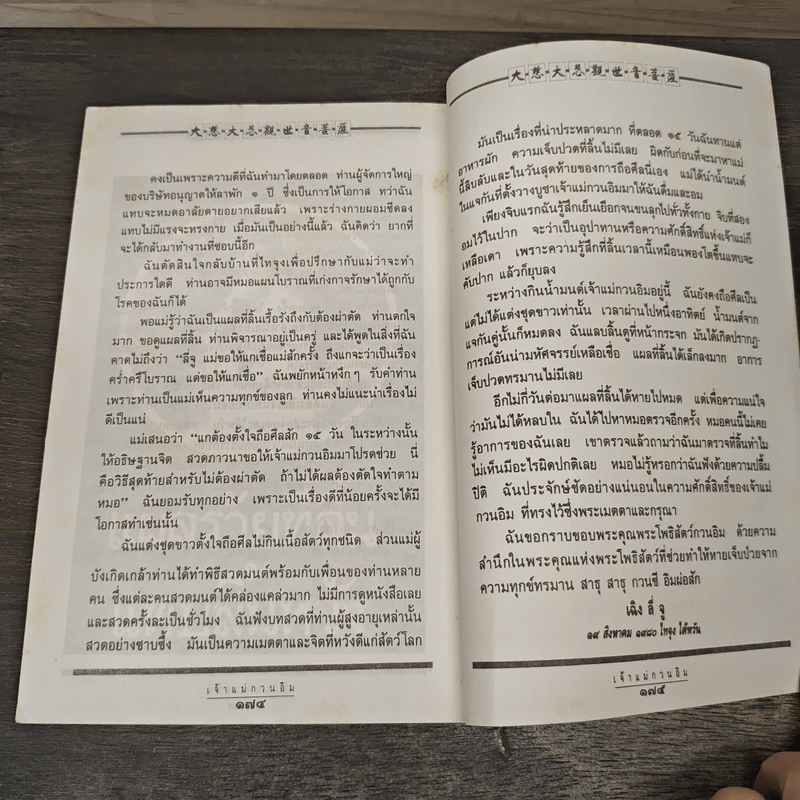 大慈大悲觀世音菩薩
คงเป็นเพราะความดีที่ฉันทำมาโดยตลอด ท่านผู้จัดการใหญ่
ของบริษัทอนุญาตให้ลาพัก ๑ ปี ซึ่งเป็นการให้โอกาส ทว่าฉัน
แทบจะหมดอาลัยตายอยากเสียแล้ว เพราะร่างกายผอมซีดลง
แทบไม่มีแรงจะทรงกาย เมื่อมันเป็นอย่างนี้แล้ว ฉันคิดว่า ยากที่
จะได้กลับมาทำงานที่ชอบนี้อีก
ฉันตัดสินใจกลับบ้านที่ไทจุงเพื่อปรึกษากับแม่ว่าจะทำ
ประการใดดี ท่านอาจมีหมอแผนโบราณที่เก่งกาจรักษาได้ถูกกับ
โรคของฉันก็ได้
พอแม่รู้ว่าฉันเป็นแผลที่ลิ้นเรื้อรังถึงกับต้องผ่าตัด ท่านตกใจ
มาก ขอดูแผลที่ลิ้น ท่านพิจารณาอยู่เป็นครู่ และได้พูดในสิ่งที่ฉัน
คาดไม่ถึงว่า “ลี่จู แม่ขอให้แกเชื่อแม่สักครั้ง ถึงแกจะว่าเป็นเรื่อง
คร่ำครึโบราณ แต่ขอให้แกเชื่อ” ฉันพยักหน้าหงึกๆ รับคำท่าน
เพราะท่านเป็นแม่เห็นความทุกข์ของลูก ท่านคงไม่แนะนำเรื่องไม่
ดีเป็นแน่
แม่เสนอว่า “แกต้องตั้งใจถือศีลสัก ๑๕ วัน ในระหว่างนั้น
ให้อธิษฐานจิต สวดภาวนาขอให้เจ้าแม่กวนอิมมาโปรดช่วย นี่
คือวิธีสุดท้ายสำหรับไม่ต้องผ่าตัด ถ้าไม่ได้ผลต้องตัดใจทำตาม
หมอ” ฉันยอมรับทุกอย่าง เพราะเป็นเรื่องดีที่น้อยครั้งจะได้มี
โอกาสทำเช่นนั้น
ฉันแต่งชุดขาวตั้งใจถือศีลไม่กินเนื้อสัตว์ทุกชนิด ส่วนแม่ผู้
บังเกิดเกล้าท่านได้ทำพิธีสวดมนต์พร้อมกับเพื่อนของท่านหลาย
คน ซึ่งแต่ละคนสวดมนต์ได้คล่องแคล่วมาก ไม่มีการดูหนังสือเลย
และสวดครั้งละเป็นชั่วโมง ฉันฟังบทสวดที่ท่านผู้สูงอายุเหล่านั้น
สวดอย่างซาบซึ้ง มันเป็นความเมตตาและจิตที่หวังดีแก่สัตว์โลก
เจ้าแม่กวนอิม
๑๗๔
大慈大悲觀世音菩薩
มันเป็นเรื่องที่น่าประหลาดมาก ที่ตลอด ๑๕ วันฉันทานแต่
อาหารผัก ความเจ็บปวดที่ลิ้นไม่มีเลย ผิดกับก่อนที่จะมาหาแม่
นี้ลิบลับและในวันสุดท้ายของการถือศีลนี่เอง แม่ได้นำน้ำมนต์
ในแจกันที่ตั้งวางบูชาเจ้าแม่กวนอิมมาให้ฉันดื่มและอม
เพียงจิบแรกฉันรู้สึกเย็นเยือกจนขนลุกไปทั่วทั้งกาย จิบที่สอง
อมไว้ในปาก จะว่าเป็นอุปาทานหรือความศักดิ์สิทธิ์ของเจ้าแม่ก็
เหลือเดา เพราะความรู้สึกที่ลิ้นเวลานี้เหมือนพองโตขึ้นแทบจะ
คับปาก แล้วก็ยุบลง
ระหว่างกินน้ำมนต์เจ้าแม่กวนอิมอยู่นี้ ฉันยังคงถือศีลเป็น
แต่ไม่ได้แต่งชุดขาวเท่านั้น เวลาผ่านไปหนึ่งอาทิตย์ น้ำมนต์จาก
แจกันคู่นั้นก็หมดลง ฉันแลบลิ้นดูที่หน้ากระจก มันได้เกิดปรากฏ-
การณ์อันน่ามหัศจรรย์เหลือเชื่อ แผลที่ลิ้นได้เล็กลงมาก อาการ
เจ็บปวดทรมานไม่มีเลย
อีกไม่กี่วันต่อมาแผลที่ลิ้นได้หายไปหมด แต่เพื่อความแน่ใจ
ว่ามันไม่ได้หลบใน ฉันได้ไปหาหมอตรวจอีกครั้ง หมอคนนี้ไม่เคย
รู้อาการของฉันเลย เขาตรวจแล้วถามว่าฉันมาตรวจที่ลิ้นทำไม
ไม่เห็นมีอะไรผิดปกติเลย หมอไม่รู้หรอกว่าฉันฟังด้วยความปลื้ม
ปีติ ฉันประจักษ์ชัดอย่างแน่นอนในความศักดิ์สิทธิ์ของเจ้าแม่
กวนอิม ที่ทรงไว้ซึ่งพระเมตตาและกรุณา
ฉันขอกราบขอบพระคุณพระโพธิสัตว์กวนอิม ด้วยความ
สำนึกในพระคุณแห่งพระโพธิสัตว์ที่ช่วยทำให้หายเจ็บป่วยจาก
ความทุกข์ทรมาน สาธุ สาธุ กวนซี อิมผ่อสัก
เฉิง ลี่ จู
๑๙ สิงหาคม ๑๙๘๐ ไทจุง ไต้หวัน
เจ้าแม่กวนอิม
๑๗๕